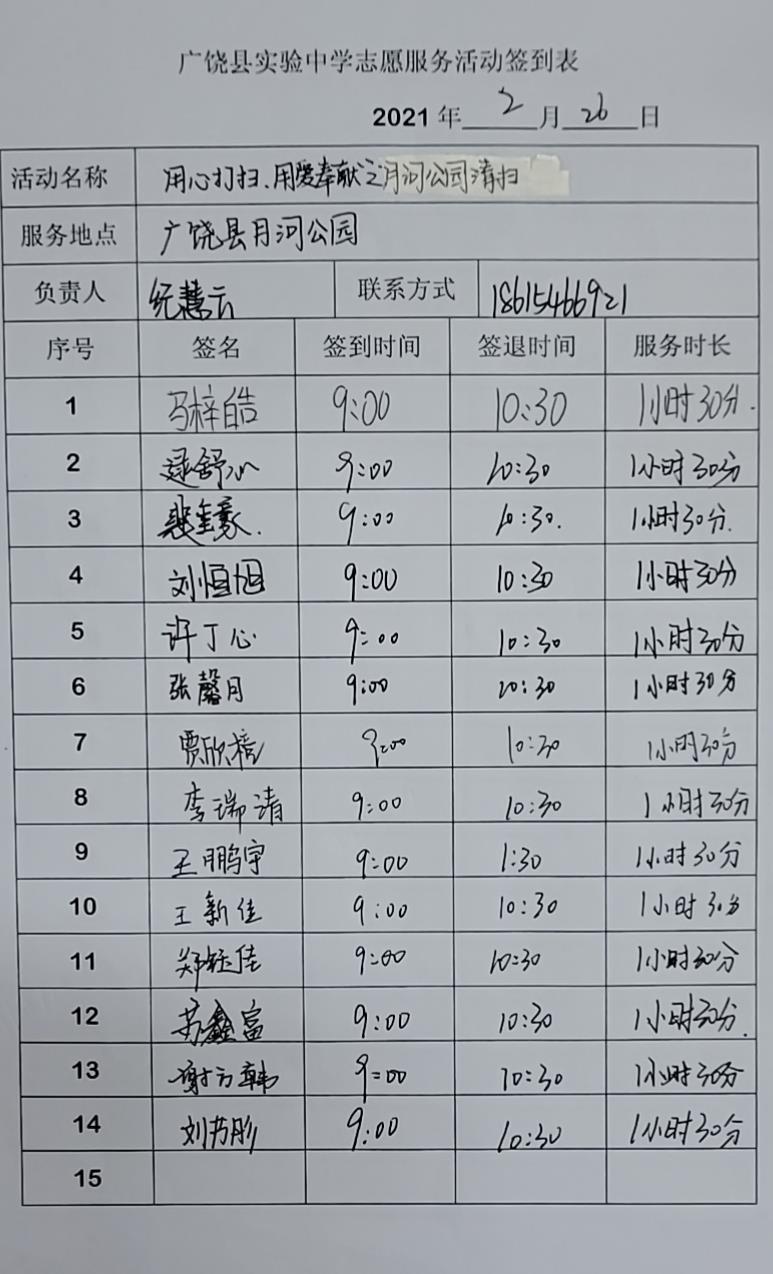 广饶县实验中学志愿服务活动签到表
2021 年 2 月 26 日
活动名称 用心打扫、用爱奉献之月河公园清扫
服务地点 广饶县月河公园
负责人 纪慧云 联系方式 18615466921
序号 签名 签到时间 签退时间 服务时长
1 马梓皓 9:00 10:30 1小时30分.
2 逯舒心 9:00 10:30 1小时30分
3 9:00 10:30. 1小时30分.
4 刘恒旭 9:00 10:30 1小时30分
5 许丁心 9:00 10:30 1小时30分
6 张馨月 9:00 10:30 1小时30分
7 贾欣 9:00 10:30 1小时30分
8 李瑞清 9:00 10:30 1小时30分
9 王鹏宇 9:00 1:30 1小时30分
10 王新佳 9:00 10:30 1小时30分
11 郑钰佳 9:00 10:30 1小时30分
12 苏鑫富 9:00 10:30 1小时30分.
13 谢方韩 9:00 10:30 1小时30分
14 刘艿彤 9:00 10:30 1小时30分
15